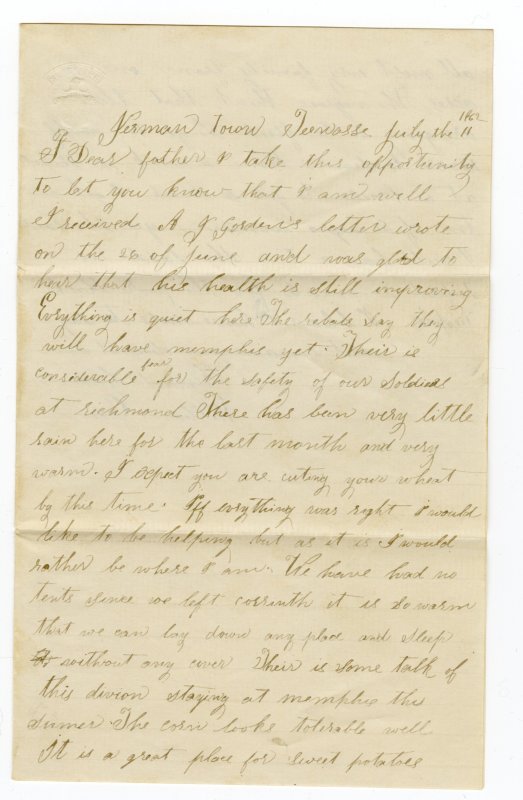 1862
Jerman town Teenasse July the 11
Dear father I take this opportunity
to let you know that I am well
I received A J Gorden's letter wrote
on the 28 of June and was glad to
hear that his health is still improving
Evrything is quiet here The rebals say they
will have memphis yet. Their is
considerable fear for the safety of our soldiers
at richmond There has been very little
rain here for the last month and very
warm. I expect you are cuting your wheat
by this time. If evrything was right I would
like to be helping but as it is I would
rather be where I am. We have had no
tents since we left corrinth it is so warm
that we can lay down any place and sleep
without any cover Their is some talk of
this divion staying at memphis this
sumer The corn looks tolerable well
It is a great place for sweet potatoes